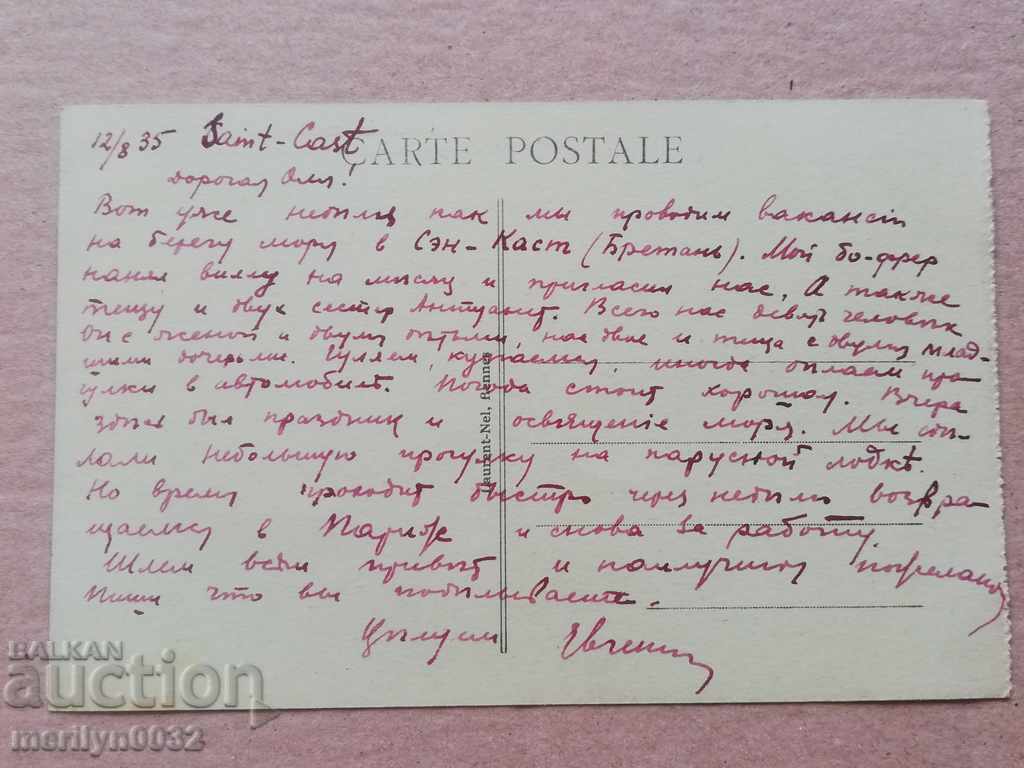 12/8 35 Saint-Cast
CARTE POSTALE
Дорогая Оля!
Вот уже неделя как мы проводим вакансіи
на берегу моря в Сэн-Каст (Бретань). Мой бо-фрер
нанял виллу на месяц и пригласил нас, а также
тещу и двух сестер Антуанет. Всего нас девять человек
Он с женой и двумя детьми, нас двое и теща с двумя млад-
шими дочерьми. Гуляем, купаемся, иногда делаем про-
гулки в автомобилѣ. Погода стоит хорошая. Вчера
здесь был праздник и освященіе моря. Мы сдѣ-
лали небольшую прогулку на парусной лодкѣ.
Но время проходит быстро через неделю возвра-
щаемся в Париж и снова за работу.
Шлем всѣм привѣт и наилучшия пожелания
Пиши что вы подѣлываете.
Цѣлуем Евгений
Laurent-Nel, Rennes
BALKAN
auction
merilyn0032